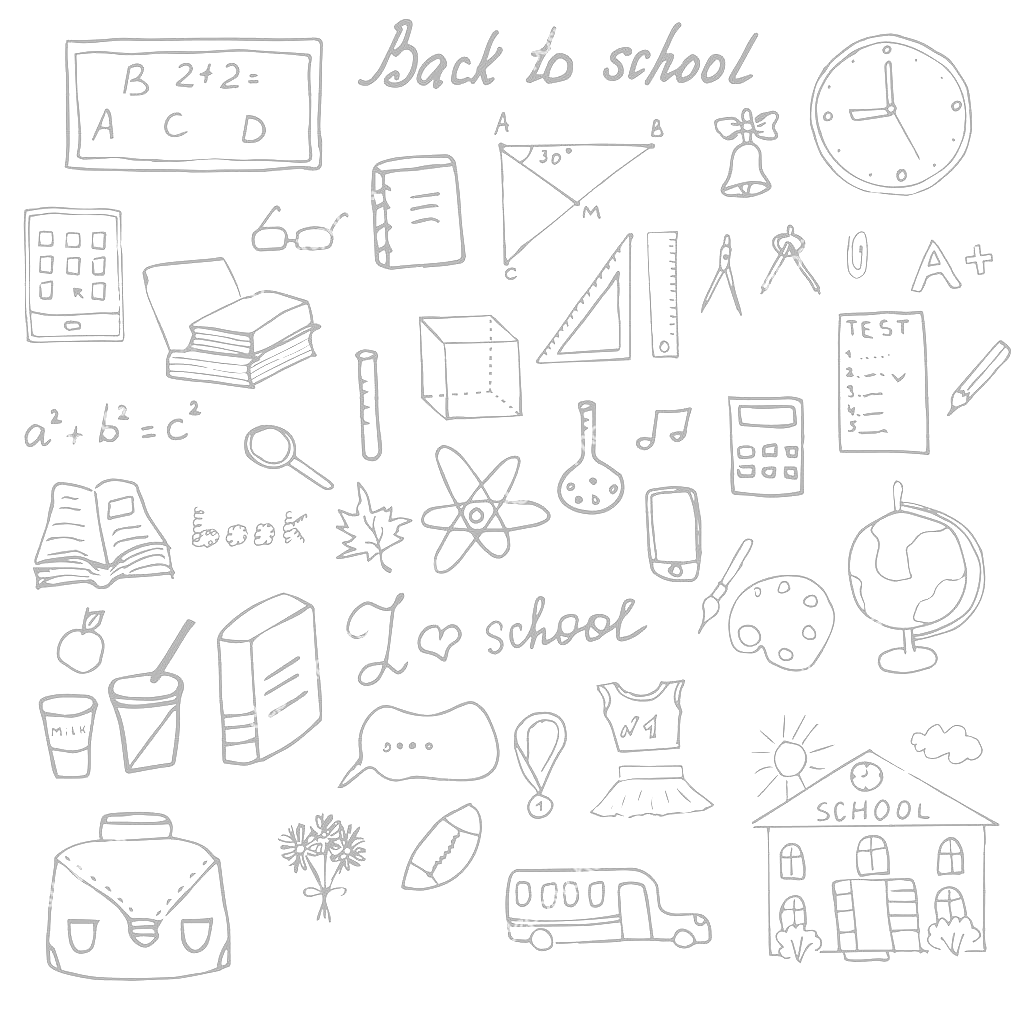 Back to school
B 2+2=
A C D
A B
30°
M
C
A+
TEST
1
2
3
4
5
a² + b² = c²
book
I ♡ school
MilK
N1
1
SCHOOL